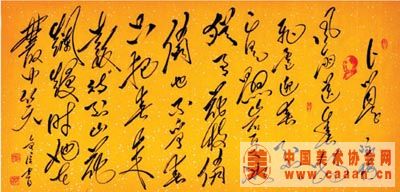 卜算子 咏梅
风雨送春归
飞雪迎春到
已是悬崖百丈冰
犹有花枝俏
俏也不争春
只把春来
报待到山花
烂漫时她在
丛中笑
中国美术协会网